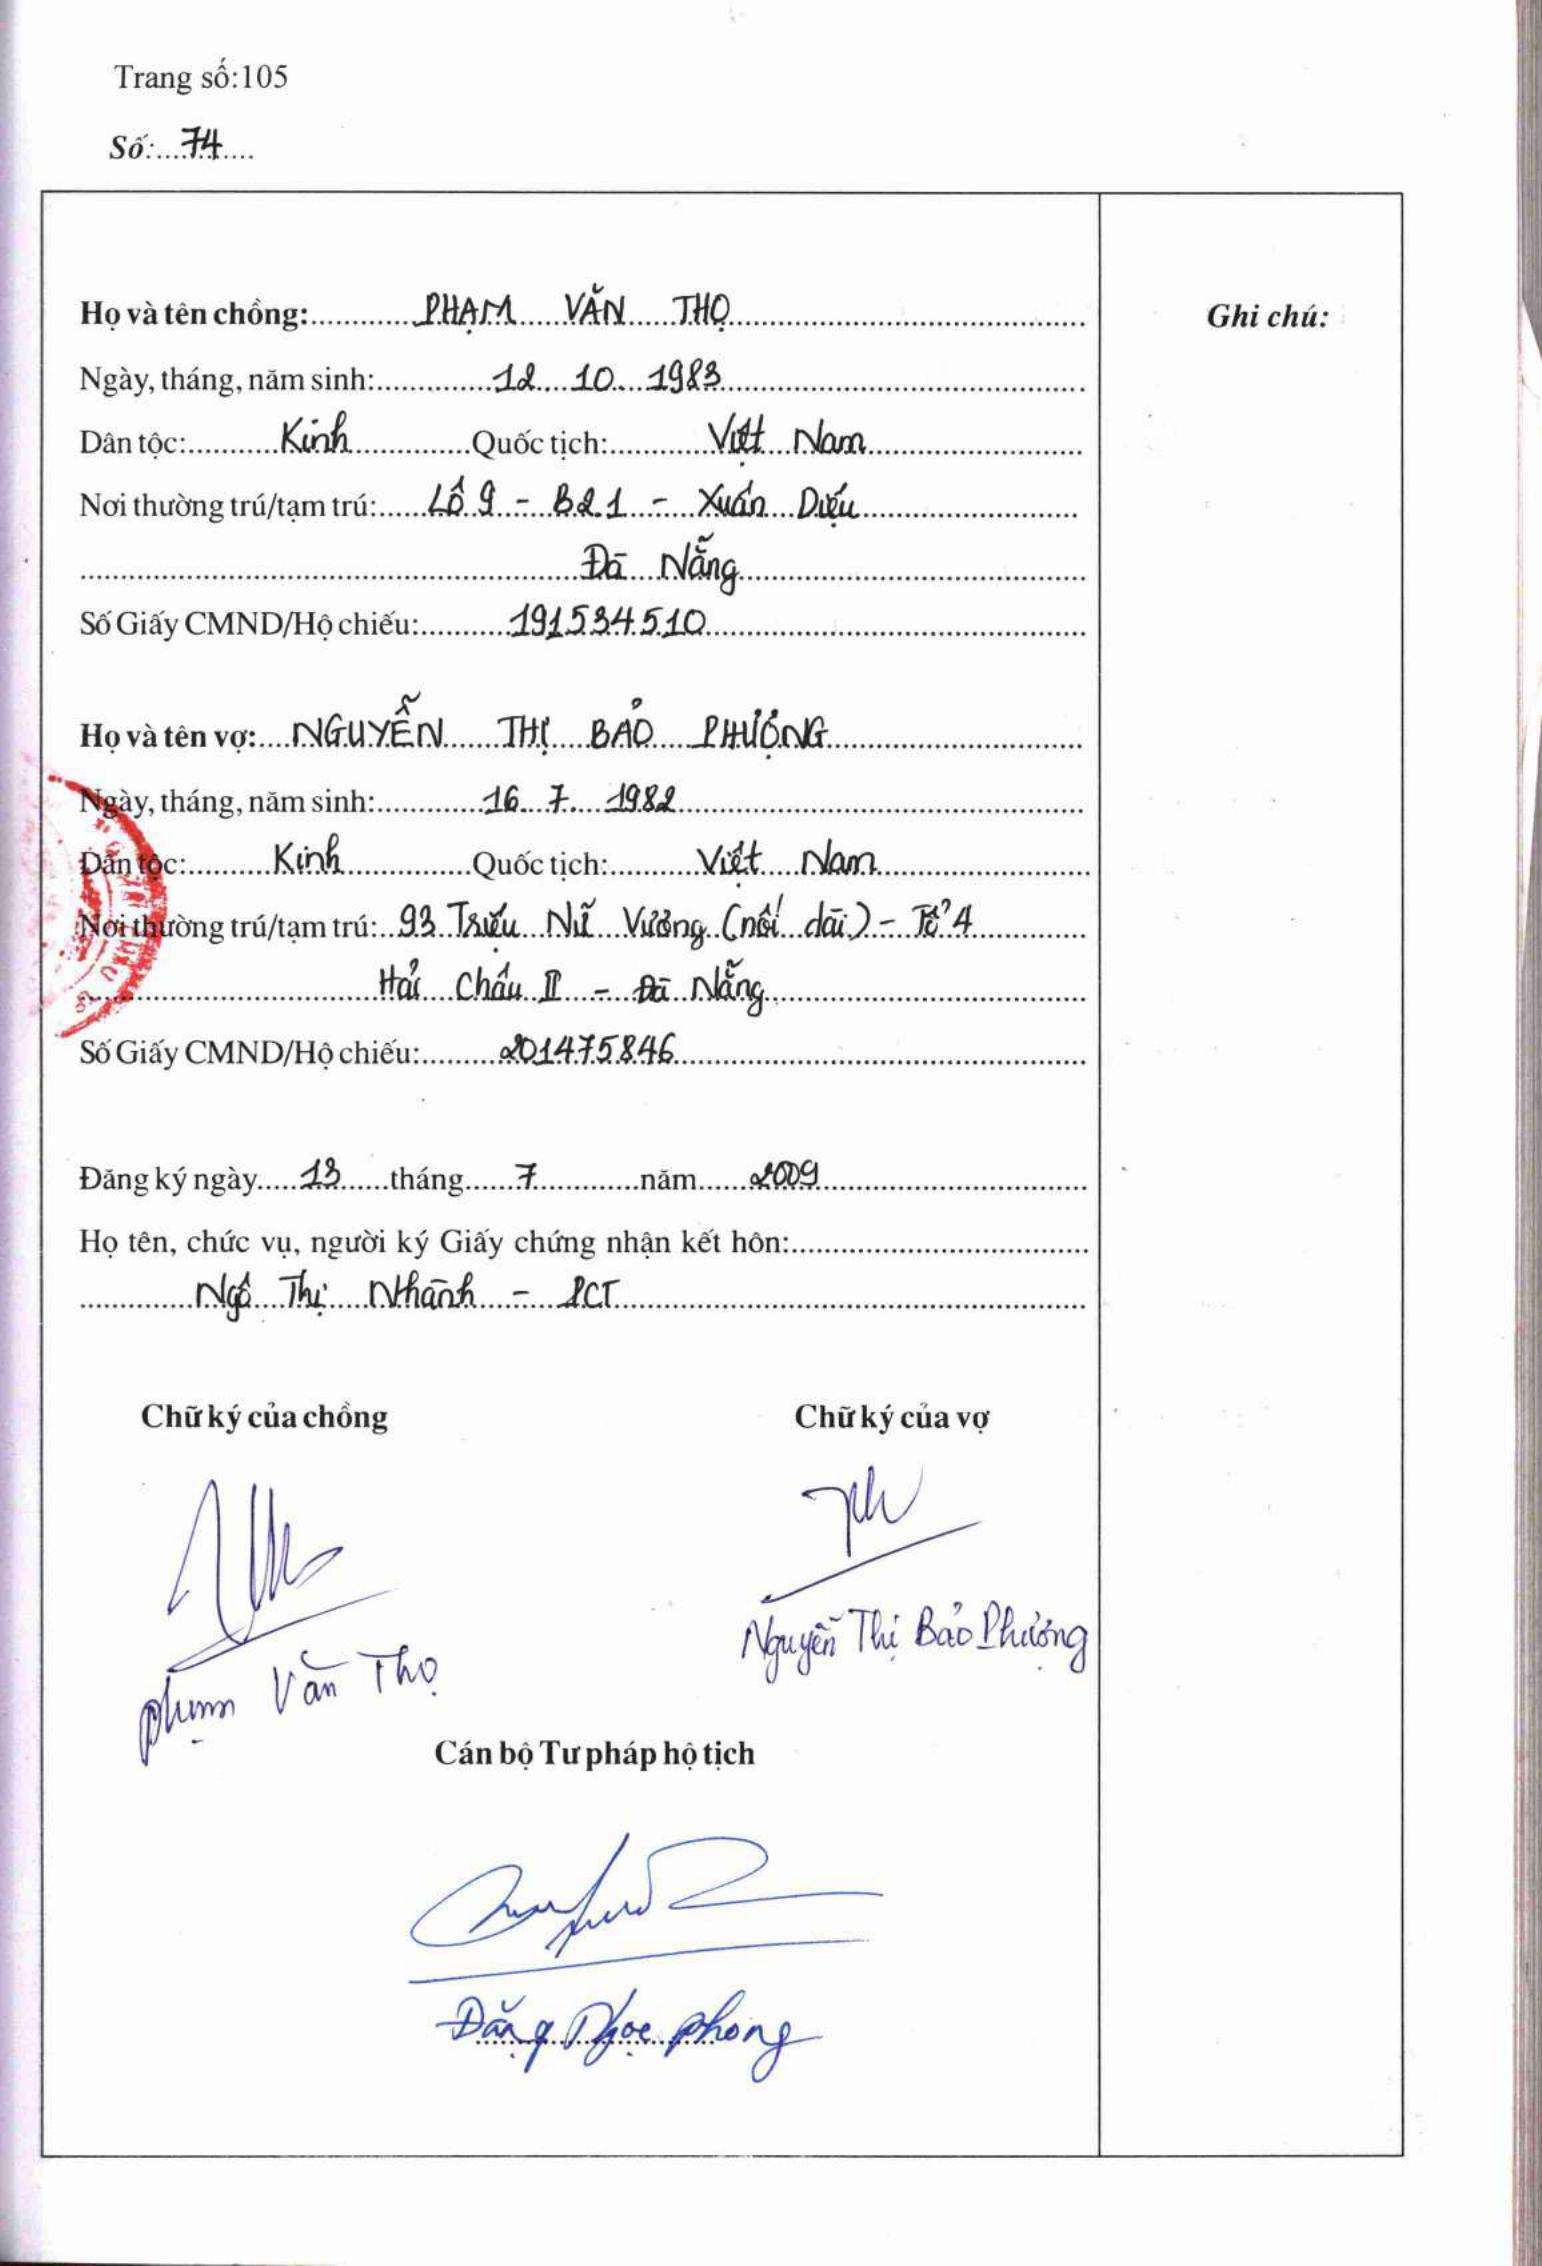 Trang số:105
Số: 74
Họ và tên chồng: PHẠM VĂN THỌ
Ghi chú:
Ngày, tháng, năm sinh: 12 10 1983
Dân tộc: Kinh Quốc tịch: Việt Nam
Nơi thường trú/tạm trú: Lô 9 - B21 - Xuân Diệu
Đà Nẵng
Số Giấy CMND/Hộ chiếu: 191534510
Họ và tên vợ: NGUYỄN THỊ BẢO PHƯỢNG
Ngày, tháng, năm sinh: 16 7 1982
Dân tộc: Kinh Quốc tịch: Việt Nam
Nơi thường trú/tạm trú: 93 Triệu Nữ Vương (nối dài) - Tổ 4
Hải Châu II - Đà Nẵng
Số Giấy CMND/Hộ chiếu: 201475846
Đăng ký ngày 13 tháng 7 năm 2009
Họ tên, chức vụ, người ký Giấy chứng nhận kết hôn:
Ngô Thị Nhành - PCT
Chữ ký của chồng Chữ ký của vợ
Nguyễn Thị Bảo Phượng
Phạm Văn Thọ
Cán bộ Tư pháp hộ tịch
Đặng Ngọc Phong